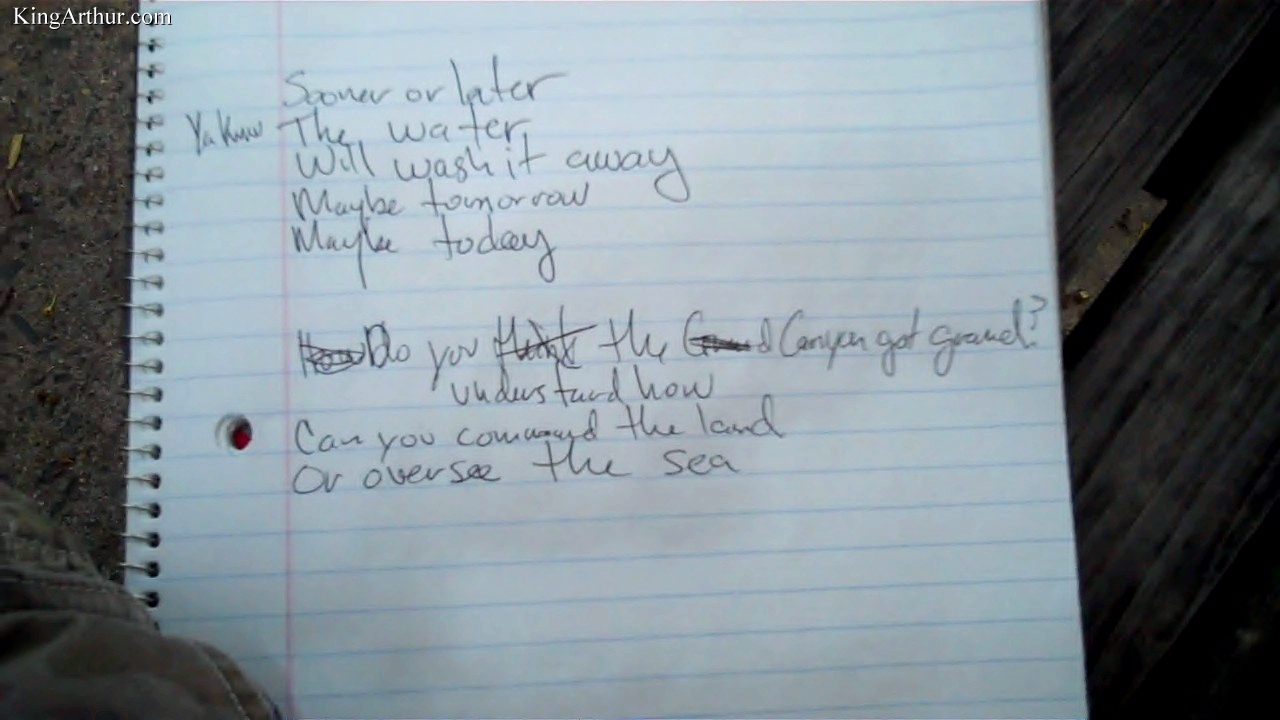 KingArthur.com
Sooner or later
Ya Know The water
Will wash it away
Maybe tomorrow
Maybe today
Do you think the Grand Canyon got grand?
understand how
Can you command the land
Or oversee the sea